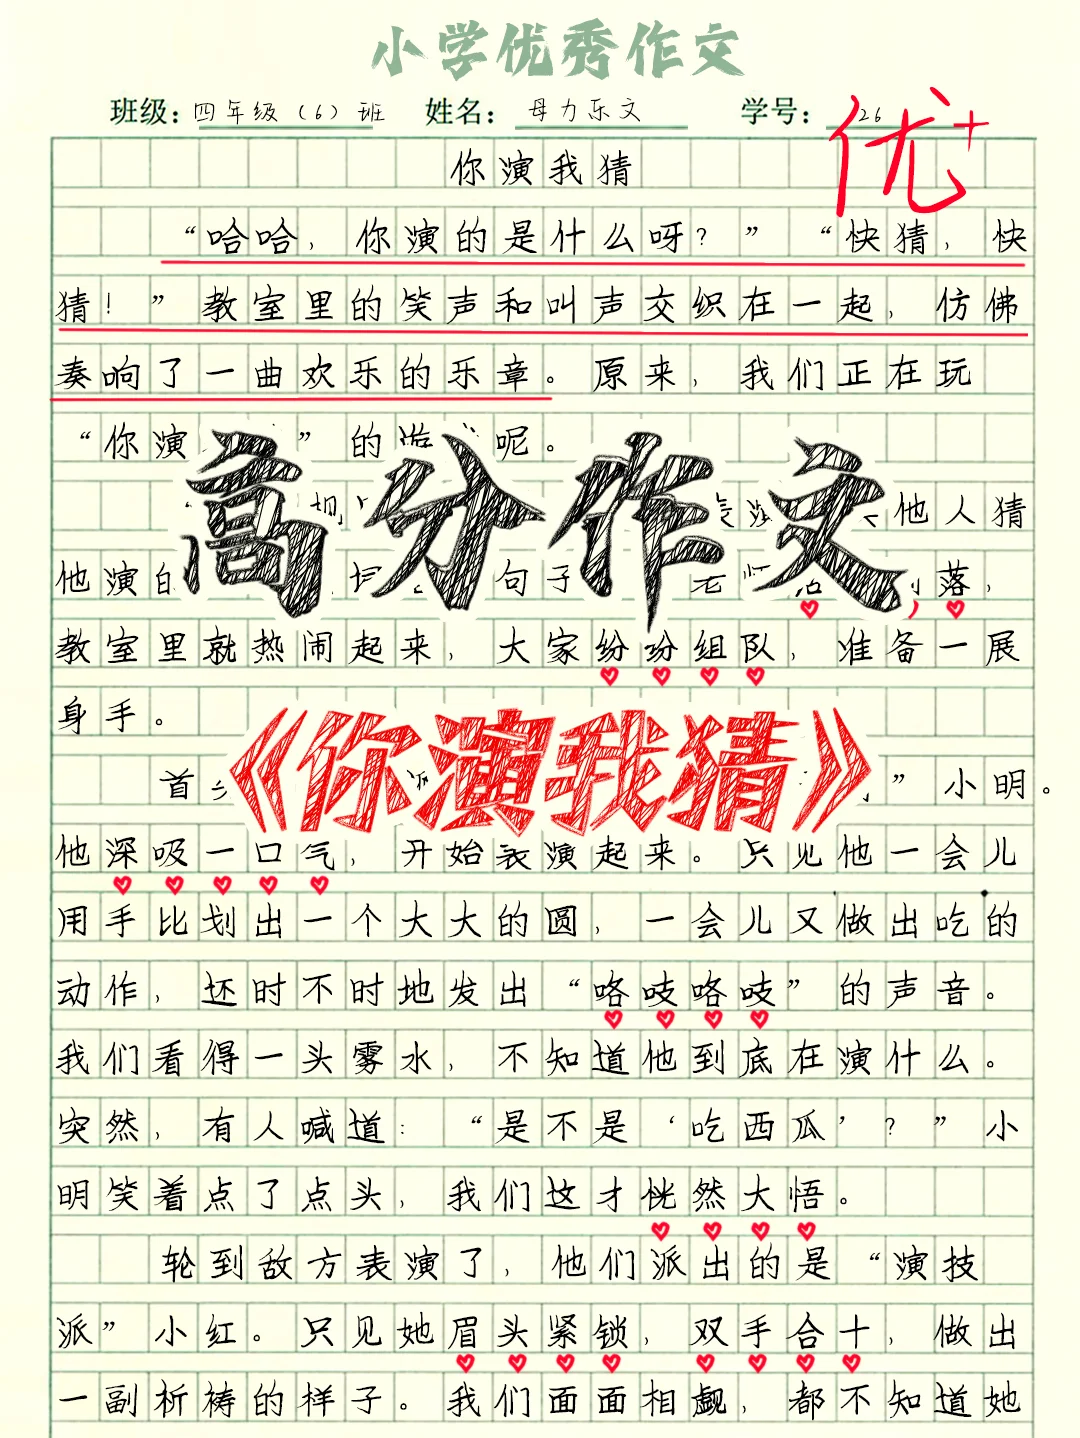 小学优秀作文
班级：四年级（6）班 姓名：母力乐文 学号：26
优+
你演我猜
“哈哈，你演的是什么呀？”“快猜，快
猜！”教室里的笑声和叫声交织在一起，仿佛
奏响了一曲欢乐的乐章。原来，我们正在玩
“你演 ”的游戏呢。
高分作文
他人猜
他演的 句子 落，
教室里就热闹起来，大家纷纷组队，准备一展
身手。
《你演我猜》
首先 派 ”小明。
他深吸一口气，开始表演起来。只见他一会儿
用手比划出一个大大的圆，一会儿又做出吃的
动作，还时不时地发出“咯吱咯吱”的声音。
我们看得一头雾水，不知道他到底在演什么。
突然，有人喊道：“是不是‘吃西瓜’？”小
明笑着点了点头，我们这才恍然大悟。
轮到敌方表演了，他们派出的是“演技
派”小红。只见她眉头紧锁，双手合十，做出
一副祈祷的样子。我们面面相觑，都不知道她